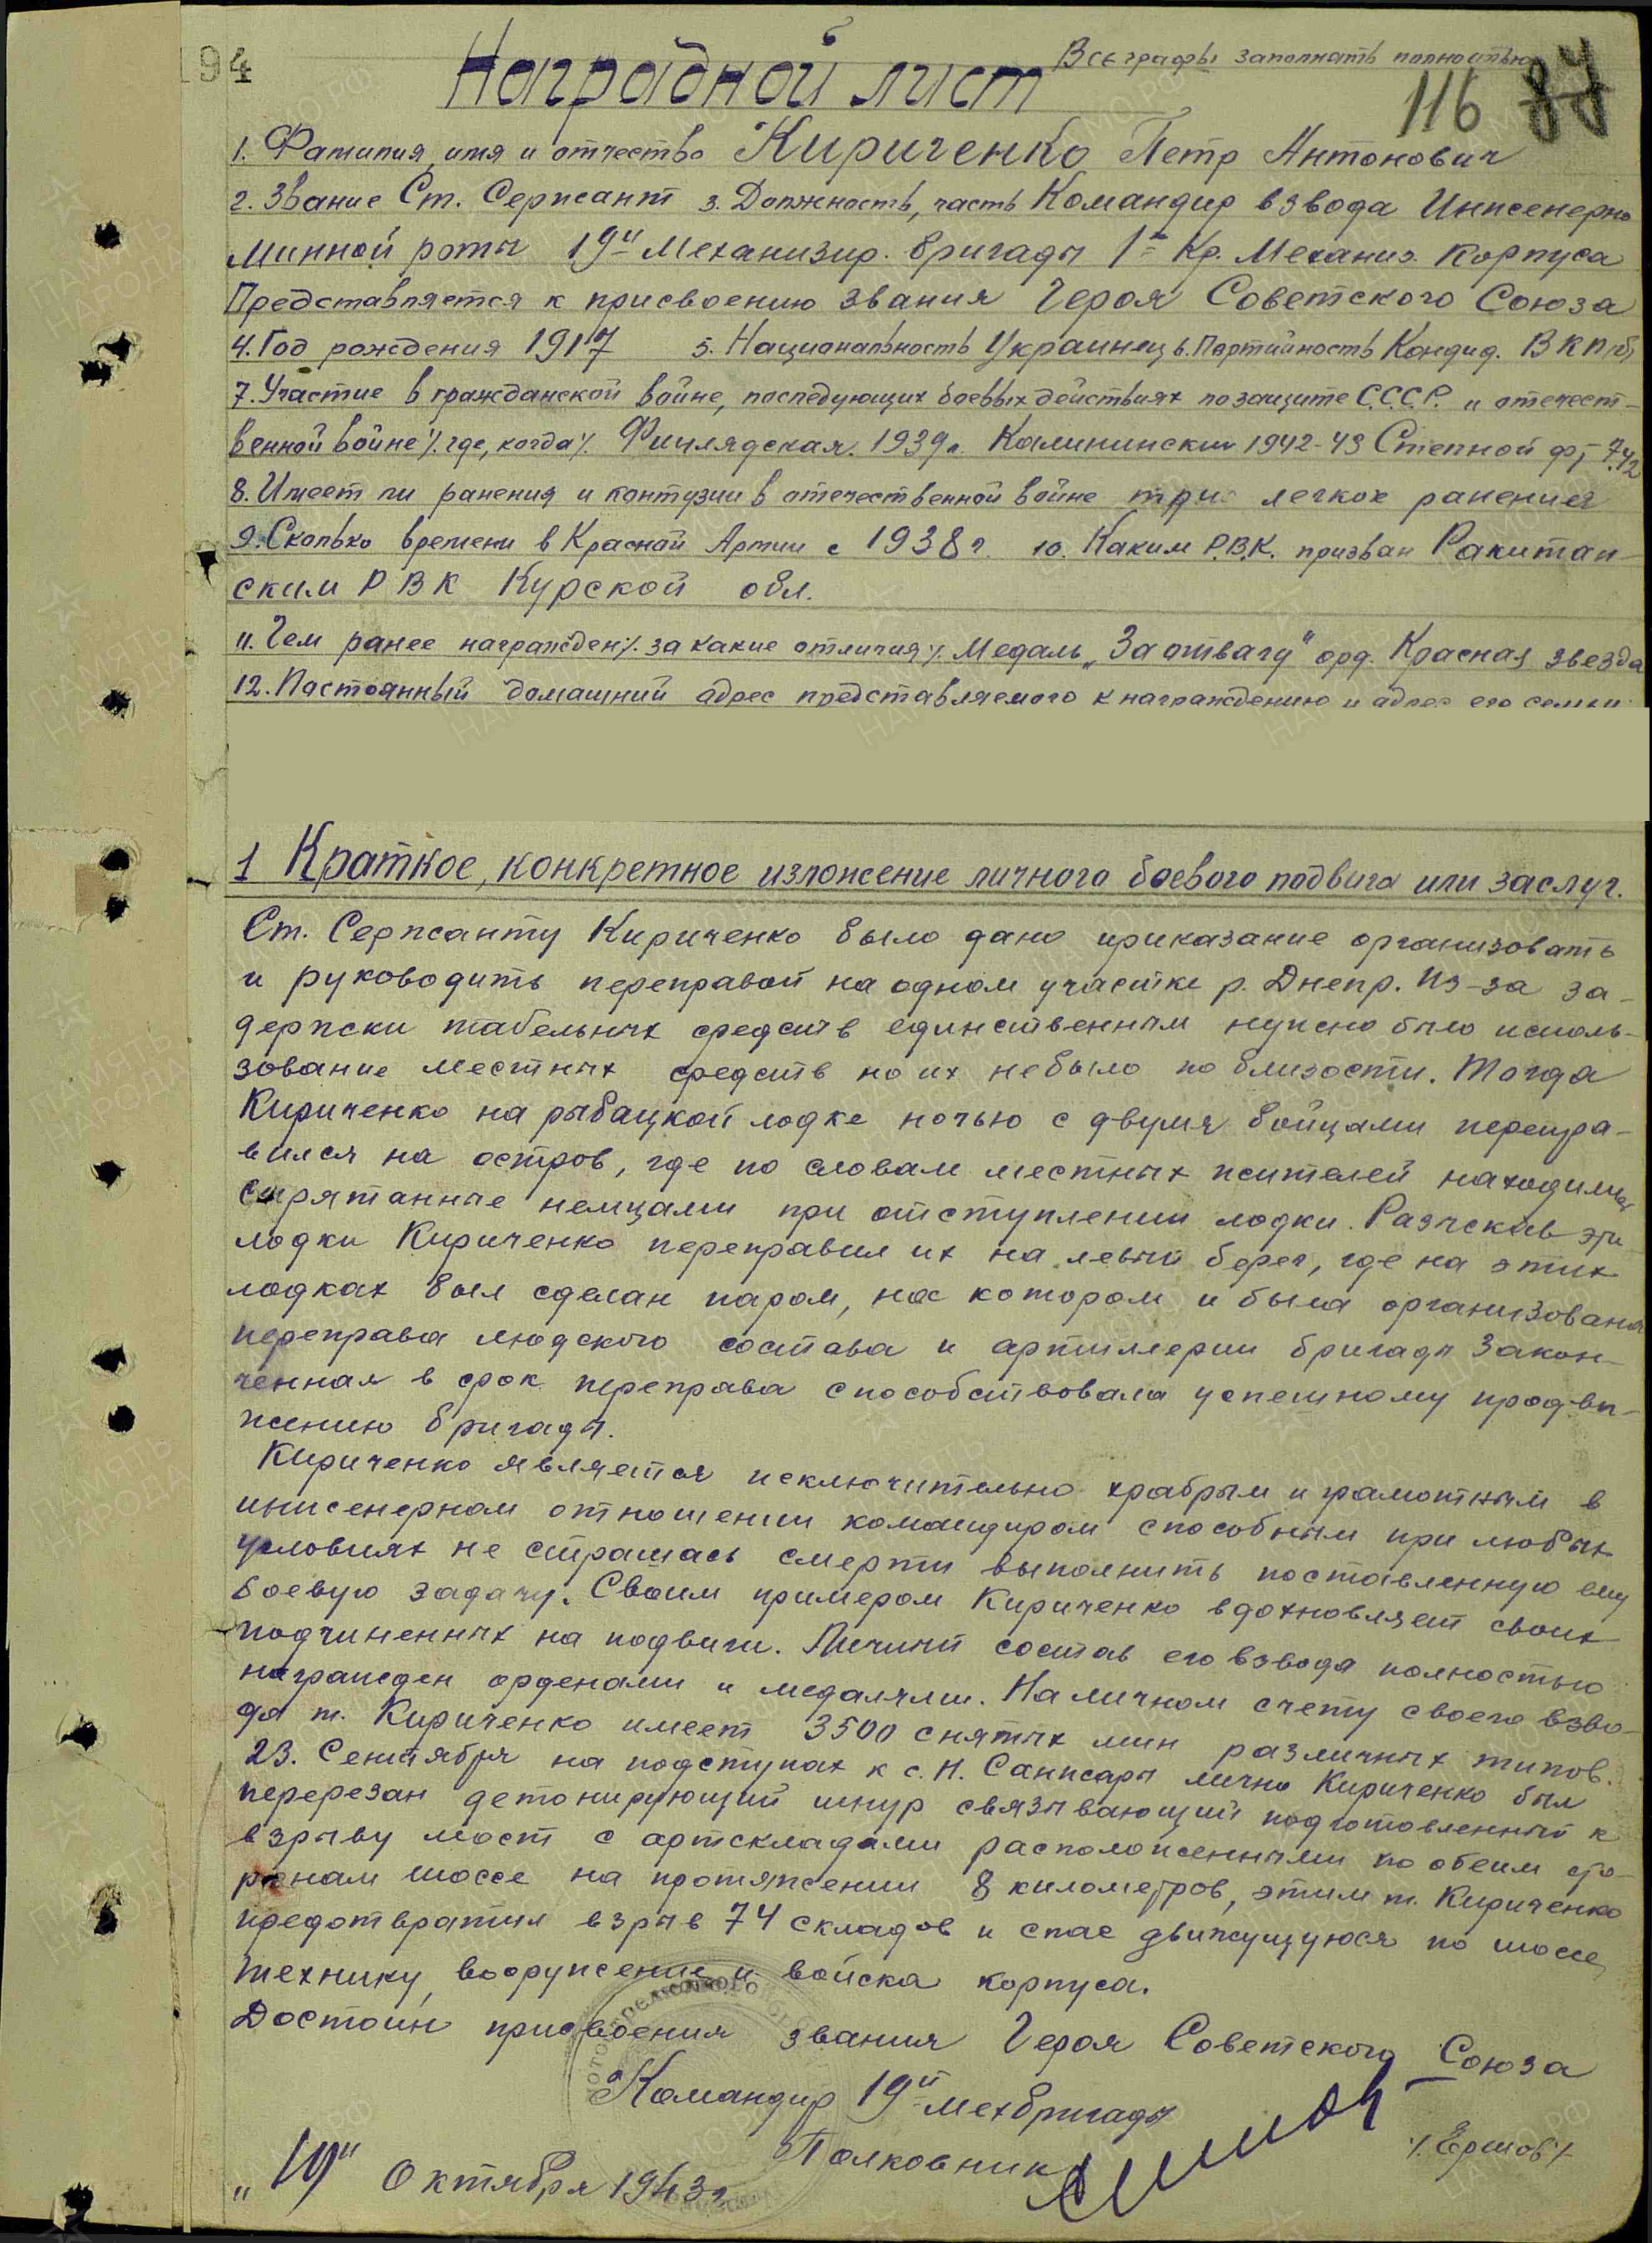 194
Все графы заполнять полностью
Наградной лист
116 87
1. Фамилия, имя и отчество Кириченко Петр Антонович
2. Звание Ст. Сержант 3. Должность, часть Командир взвода Инженерно
минной роты 19й Механизир. бригады 1го Кр. Механиз. Корпуса
Представляется к присвоению звания Героя Советского Союза
4. Год рождения 1917 5. Национальность Украинец 6. Партийность Кандид. ВКП(б)
7. Участие в гражданской войне, последующих боевых действиях по защите С.С.С.Р. и отечест-
венной войне /. где, когда /. Финлядская. 1939г. Калининский 1942-43 Степной ф.
8. Имеет ли ранения и контузии в отечественной войне три легкое ранения
9. Сколько времени в Красной Армии с 1938 г. 10. Каким Р.В.К. призван Ракитян-
ским РВК Курской обл.
11. Чем ранее награжден /. за какие отличия /. Медаль „За отвагу" орд. Красная звезда
12. Постоянный домашний адрес представляемого к награждению и адрес его семьи
1 Краткое, конкретное изложение личного боевого подвига или заслуг.
Ст. Сержанту Кириченко было дано приказание организовать
и руководить переправой на одном участке р. Днепр. Из-за за-
держки табельных средств единственным нужно было исполь-
зование местных средств но их небыло по близости. Тогда
Кириченко на рыбацкой лодке ночью с двумя бойцами перепра-
вился на остров, где по словам местных жителей находились
спрятанные немцами при отступлении лодки. Разыскав эти
лодки Кириченко переправил их на левый берег, где на этих
лодках был сделан паром, на котором и была организована
переправа людского состава и артиллерии бригады Закон-
ченная в срок переправа способствовала успешному продви-
жению бригады.
Кириченко является исключительно храбрым и грамотным в
инженерном отношении командиром способным при любых
условиях не страшась смерти выполнить поставленную ему
боевую задачу. Своим примером Кириченко вдохновляет своих
подчиненных на подвиги. Личный состав его взвода полностью
награжден орденами и медалями. На личном счету своего взво-
да т. Кириченко имеет 3500 снятых мин различных типов.
23. Сентября на подступах к с. Н. Санжары лично Кириченко был
перерезан детонирующий шнур связывающий подготовленный к
взрыву мост с артскладами расположенными по обеим сто-
ронам шоссе на протяжении 8 километров, этим т. Кириченко
предотвратил взрыв 74 складов и спас движущуюся по шоссе
технику, вооружение и войска корпуса.
Достоин присвоения звания Героя Советского Союза
Командир 19й мехбригады
Полковник /. Ершов /.
„19" Октября 1943г.